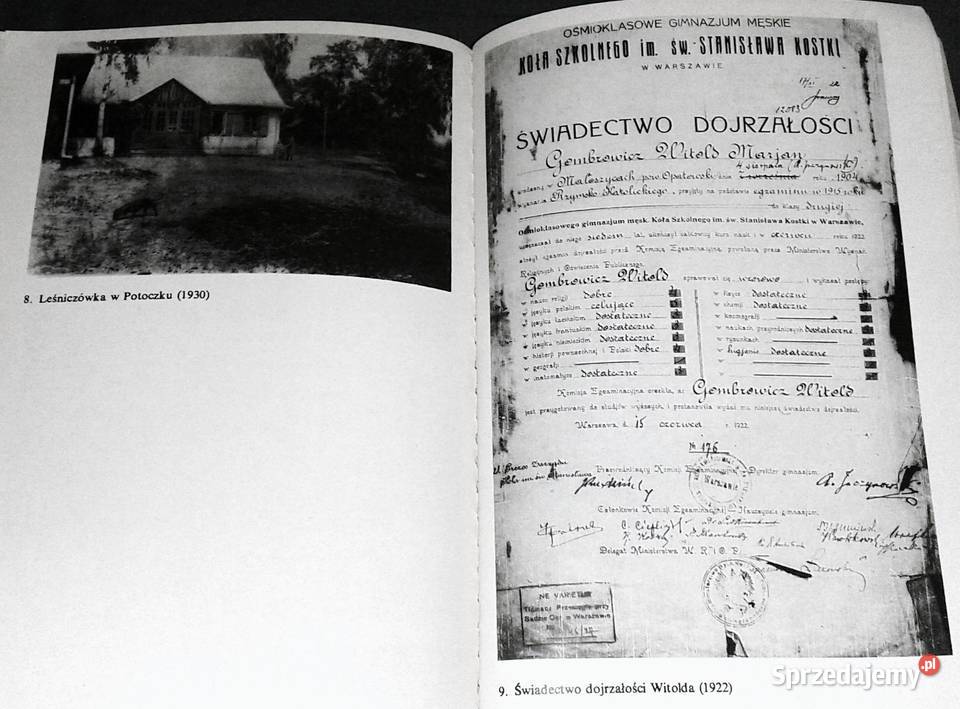 8. Leśniczówka w Potoczku (1930)
OŚMIOKLASOWE GIMNAZJUM MĘSKIE
KOŁA SZKOLNEGO im. św. STANISŁAWA KOSTKI
W WARSZAWIE
12013
ŚWIADECTWO DOJRZAŁOŚCI
Gombrowicz Witold Marjan
4 sierpnia
Małoszycach, pow. Opatowski dnia roku 1904
wyznania Rzymsko Katolickiego, przyjęty na podstawie egzaminu w 1915 roku
do klasy drugiej
Ośmioklasowego gimnazjum męsk. Koła Szkolnego im. św. Stanisława Kostki w Warszawie,
uczęszczał do niego siedem lat, ukończył całkowity kurs nauk i w czerwcu roku 1922
złożył egzamin dojrzałości przed Komisją Egzaminacyjną, powołaną przez Ministerstwo Wyznań
Religijnych i Oświecenia Publicznego.
Gombrowicz Witold sprawował się wzorowo i wykazał postępy:
w nauce religji dobre
w fizyce dostateczne
w języku polskim celujące
w chemji dostateczne
w języku łacińskim dostateczne
w kosmografji
w języku francuskim dostateczne
w naukach przyrodniczych dostateczne
w języku niemieckim dostateczne
w rysunkach
w historji powszechnej i Polski dobre
w hygjenie dostateczne
w geografji
w matematyce dostateczne
Komisja Egzaminacyjna orzekła, że Gombrowicz Witold
jest przygotowany do studjów wyższych, i postanowiła wydać mu niniejsze świadectwo dojrzałości.
Warszawa, d. 15 czerwca r. 1922
№ 176
Przewodniczący Komisji Egzaminacyjnej Dyrektor gimnazjum
Członkowie Komisji Egzaminacyjnej Nauczyciele gimnazjum
Delegat Ministerstwa W. R. i O. P.
NE VARIETUR
Tłumacz Przysięgły przy
Sądzie Okr. w Warszawie
9. Świadectwo dojrzałości Witolda (1922)
Sprzedajemy.pl